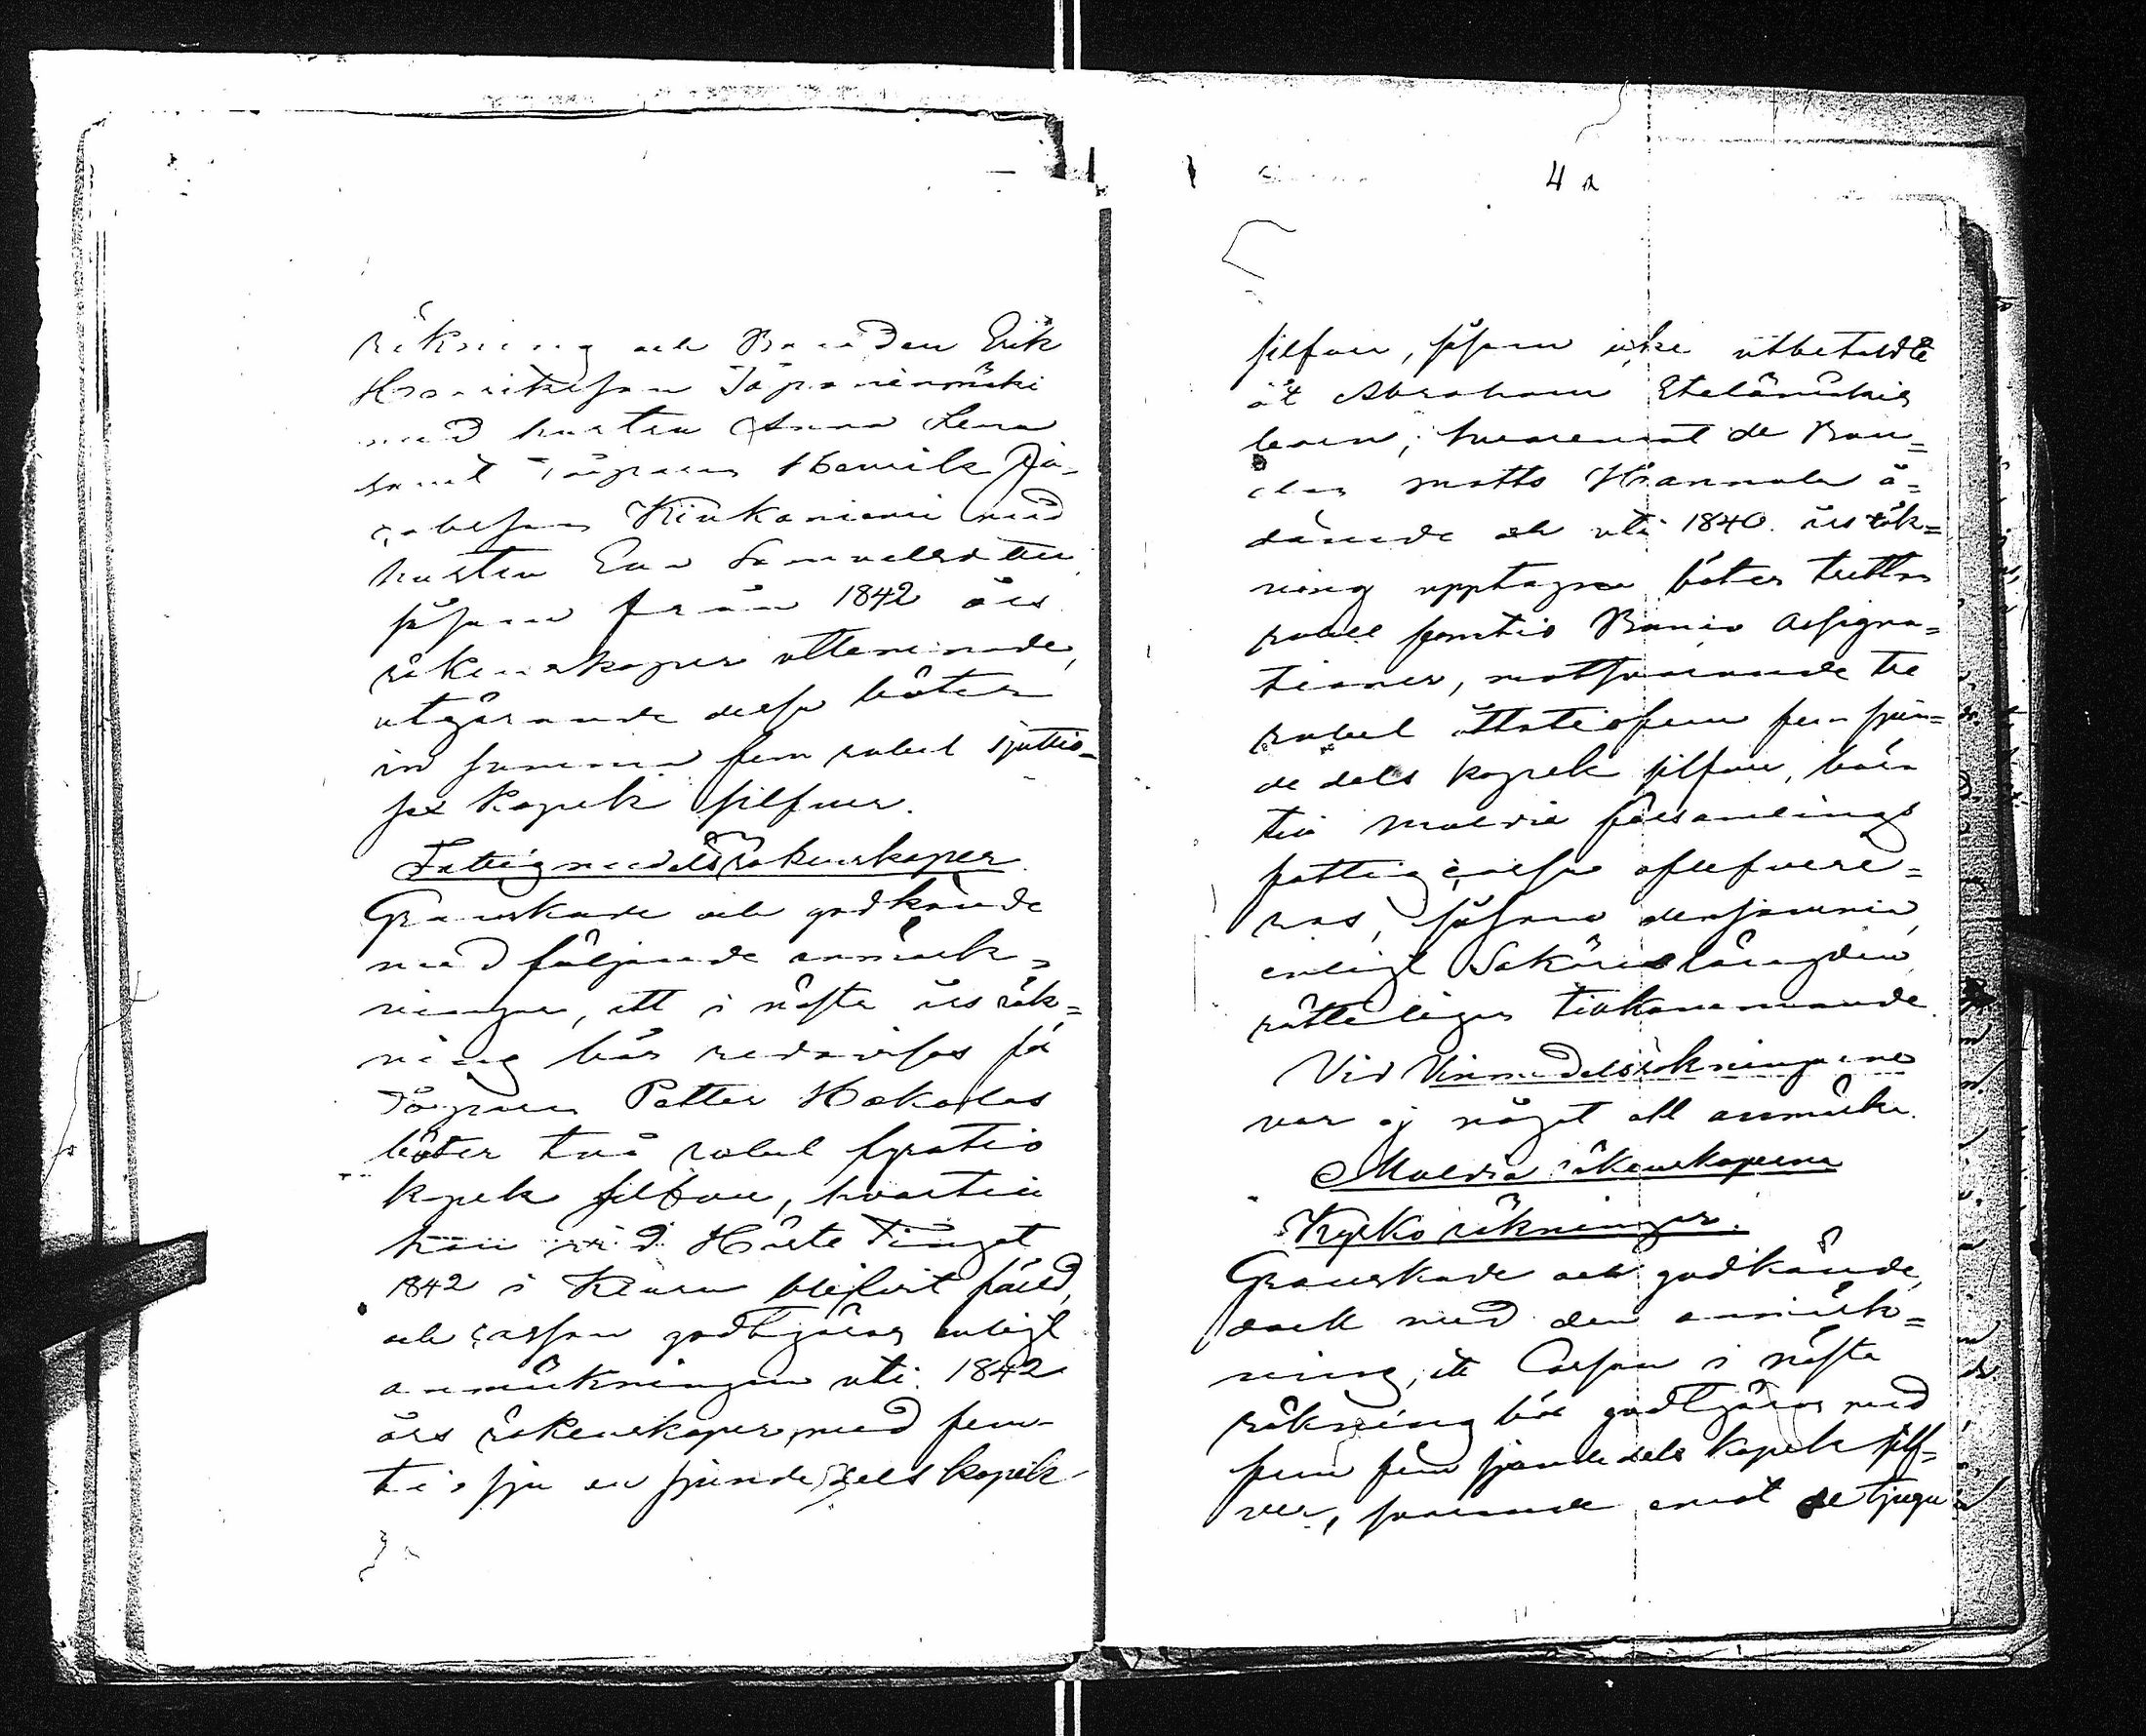 räkning och Bonden Erik
Henriksson Töpariemäki
med hustru Anna Lena
samt Torparen Henrik Ja-
cobsson Kiukaniemi med
hustru Eva Samuelsdotter,
såsom från 1842 års
räkenskaper utlemnade,
utgörande dessa böter
in summa fem rubel sjuttio-
sex Kopek silfver.
Fattigmedelsräkenskaper
Granskade och godkände
med följande anmärk-
ningar, att i nästa års räk=
ning bör redovisas få
Torparen Petter Hokolas
böter två rubel fyratio
kopek silfver, hvartill
han vid Höste Tinget
1842 i Keuru blifvit fälld,
och cassan godtgöras enligt
anmärkningen uti 1842
års räkenskaper, med fem-
tiosju en sjundedels kopek
4
silfver, såsom icke utbetaldte
åt Abraham Etelämäkis
barn; hvaremot de Bon=
den Matts Hannula å=
dömde och uti 1840 års räk=
ning upptagna böter tretton
rubel femtio Banco Assigna=
tioner, motsvarande tre
rubel åttatiofem fem sjun=
dedels kopek silfver, böra
till Multia församlings
fattigcassa aflefvere=
ras, såsom densamma,
enligt Saköreslängden
rätteligen tillkommande.
Vid Vinmedelsräkningarne
var ej något att anmärka.
Multia räkenskaperna
Kyrko räkningar.
Granskade och godkände,
dock med den anmärk=
ning, att Cassan i nästa
räkning bör godtgöras med
fem fem sjundedels kopek silf=
ver, svarande emot de tjugu